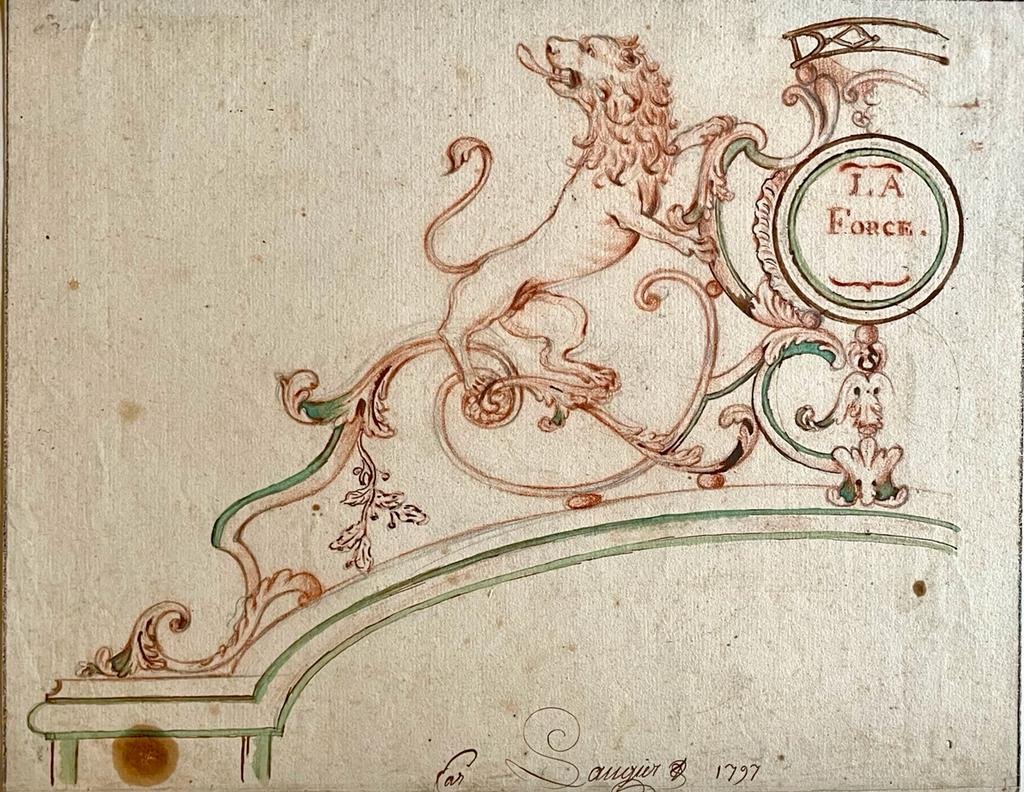 LA
FORCE.
Par Laugier 1797